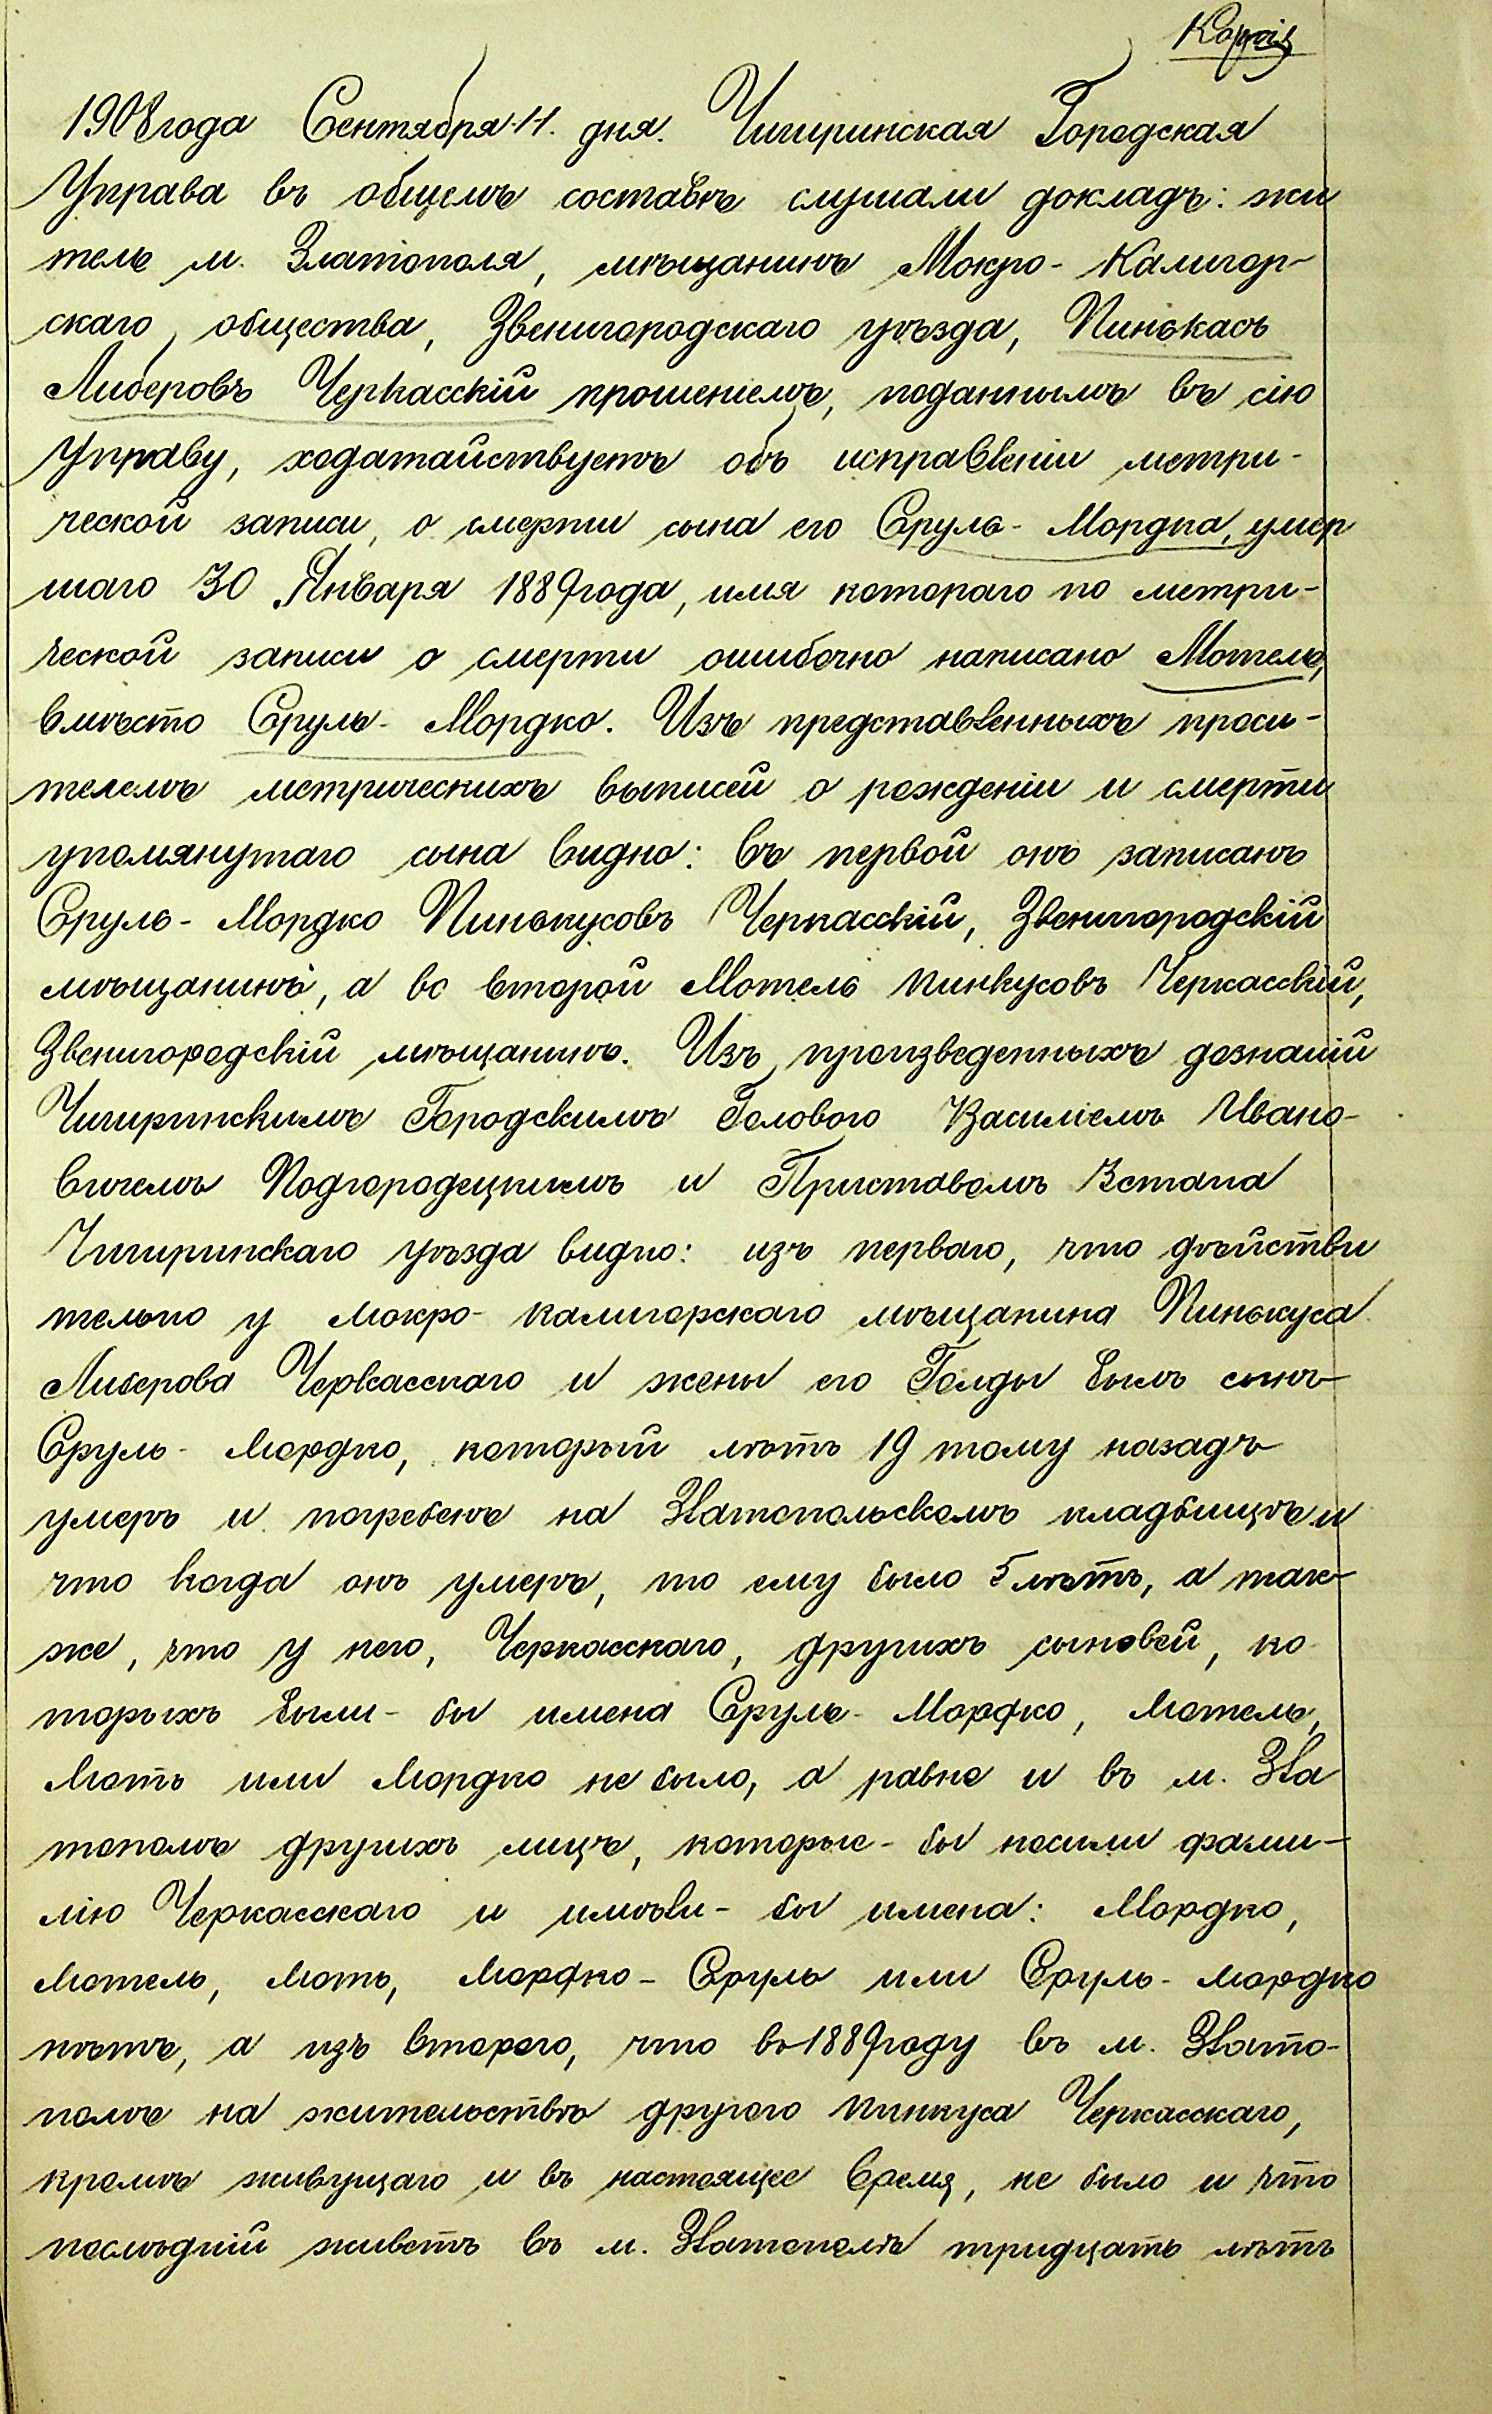 Копія
1908 года Сентября 11 дня. Чигиринская Городская
Управа въ общемъ составѣ слушали докладъ: жи
тель м. Златополя, мѣщанинъ Мокро-Калигор-
скаго общества, Звенигородскаго уѣзда, Пинькасъ
Либеровъ Черкасскій прошеніемъ, поданнымъ въ сію
Управу, ходатайствуетъ объ исправленіи метри-
ческой записи, о смерти сына его Сруль-Мордка, умер
шаго 30 Января 1889 года, имя котораго по метри-
ческой записи о смерти ошибочно написано Мотель,
вмѣсто Сруль-Мордко. Изъ представленныхъ проси-
телемъ метрическихъ выписей о рожденіи и смерти
упомянутаго сына видно: въ первой онъ записанъ
Сруль-Мордко Пинькусовъ Черкасскій, Звенигородскій
мѣщанинъ, а во второй Мотель Пинкусовъ Черкасскій,
Звенигородскій мѣщанинъ. Изъ произведенныхъ дознаній
Чигиринскимъ Городскимъ Головою Василіемъ Ивано-
вичемъ Подгородецкимъ и Приставомъ 3 стана
Чигиринскаго уѣзда видно: изъ перваго, что дѣйстви
тельно у Мокро-Калигорскаго мѣщанина Пинькуса
Либерова Черкасскаго и жены его Голды былъ сынъ
Сруль-Мордко, который лѣтъ 19 тому назадъ
умеръ и погребенъ на Златопольскомъ кладбищѣ и
что когда онъ умеръ, то ему было 5 лѣтъ, а так-
же, что у него, Черкасскаго, другихъ сыновей, ко
торыхъ были-бы имена Сруль-Мордко, Мотель,
Моть или Мордко не было, а равно и въ м. Зла
тополѣ другихъ лицъ, которые-бы носили фами-
лію Черкасскаго и имѣли-бы имена: Мордко,
Мотель, Моть, Мордко-Сруль или Сруль-Мордко
нѣтъ, а изъ второго, что въ 1889 году въ м. Злато-
полѣ на жительствѣ другого Пинкуса Черкасскаго,
кромѣ живущаго и въ настоящее время, не было и что
послѣдній живетъ въ м. Златополѣ тридцать лѣтъ